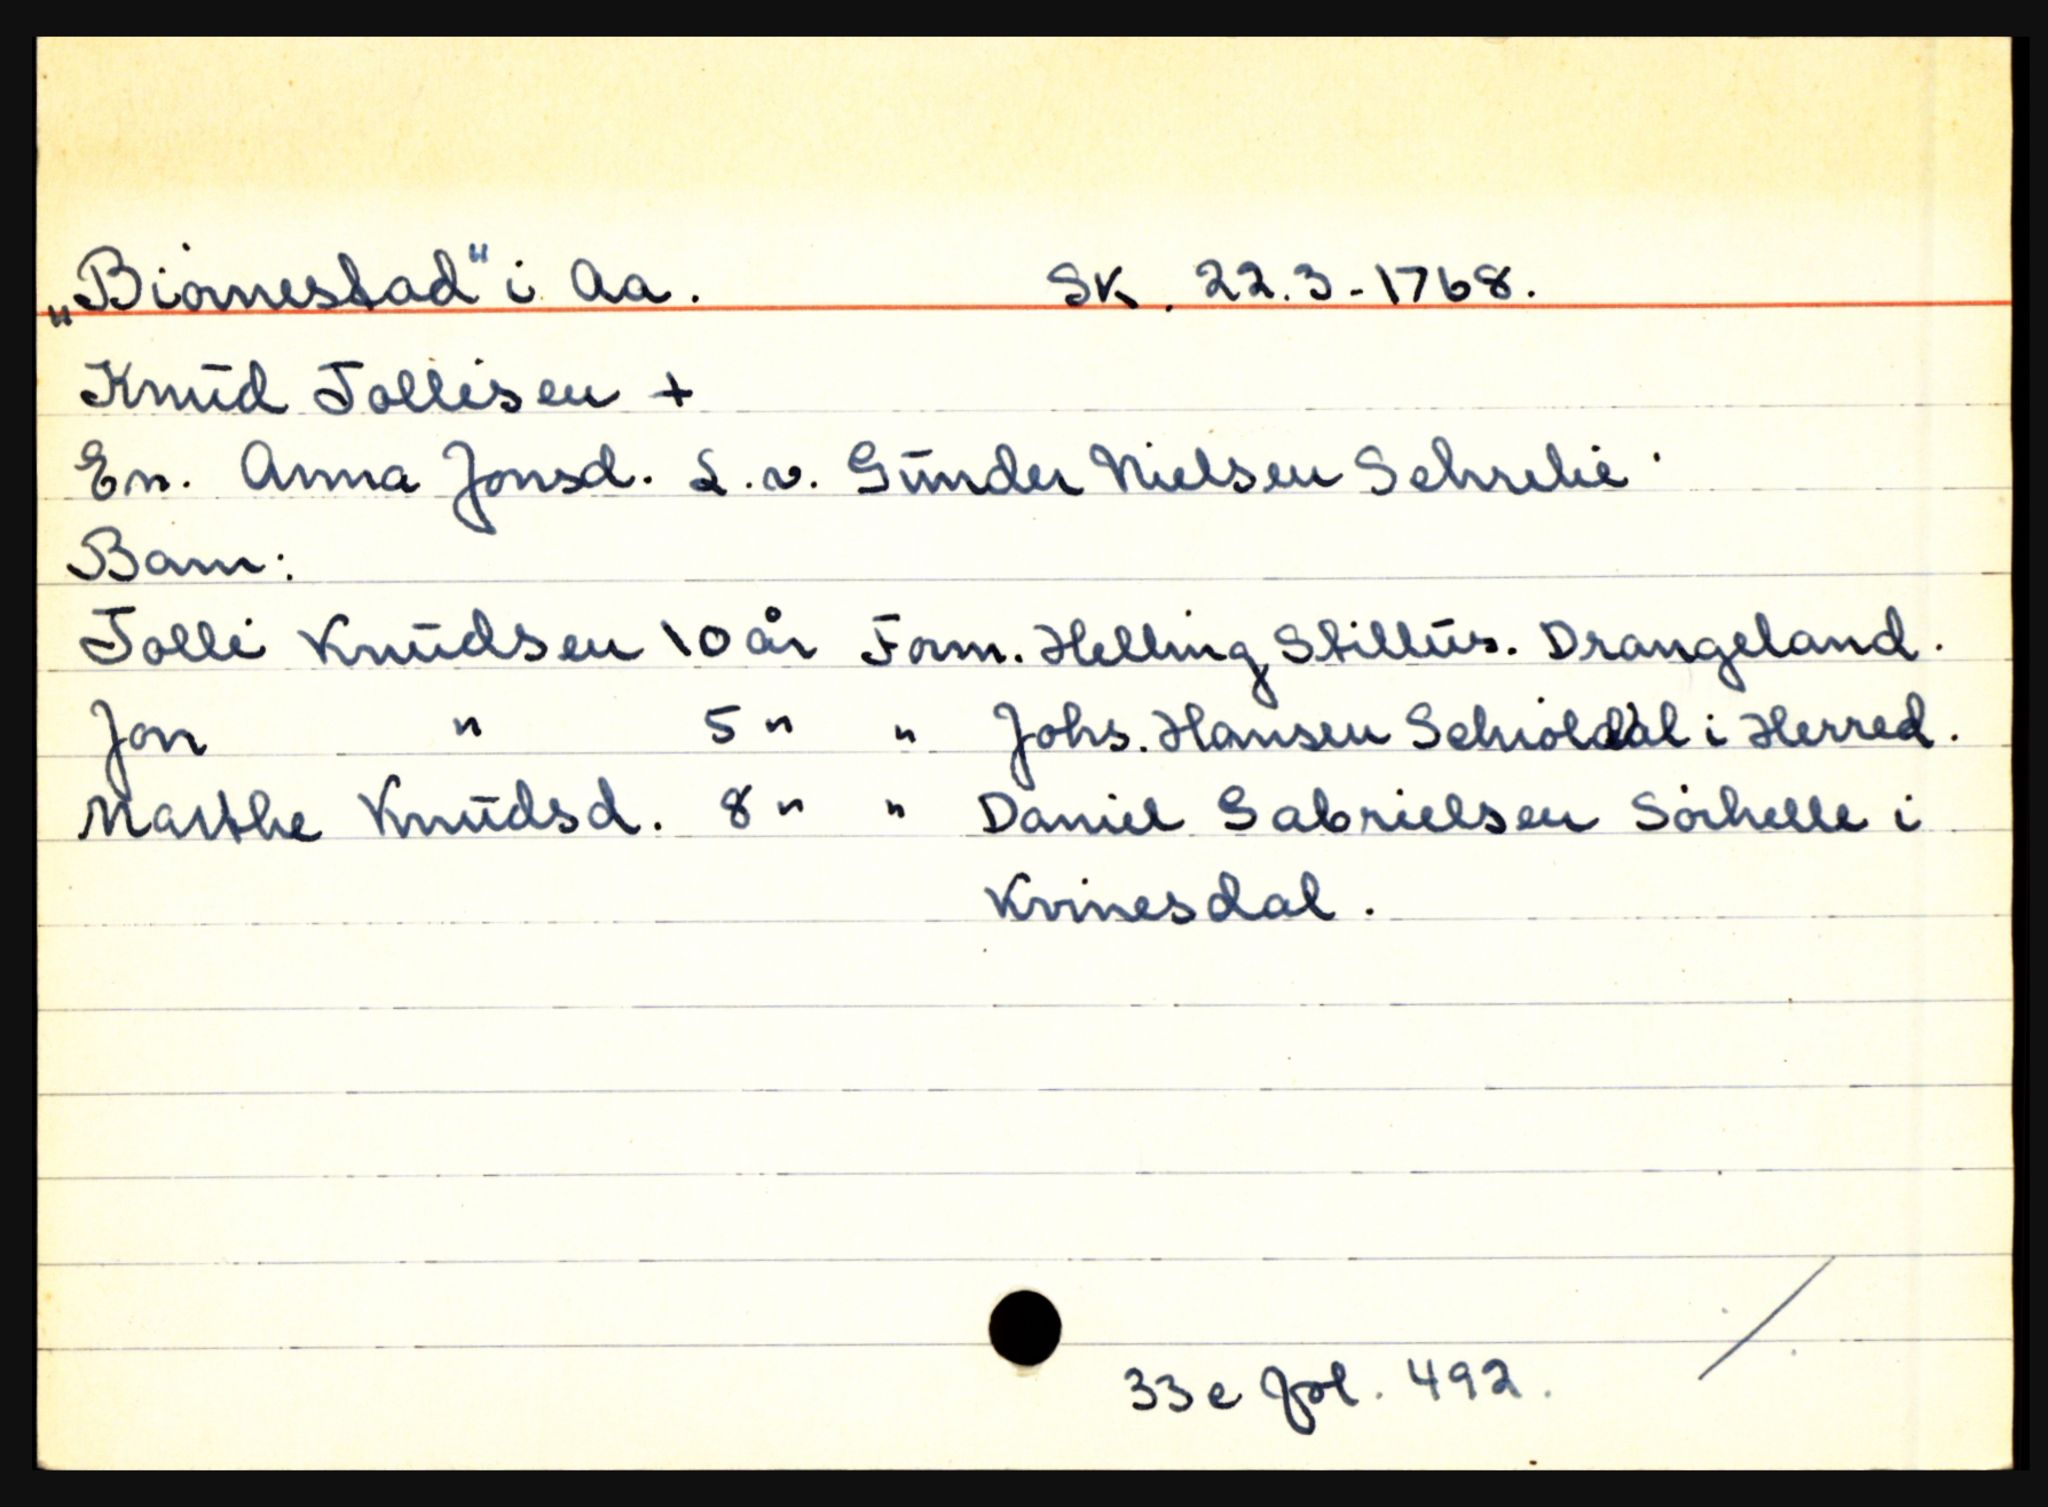 „Biornestad“ i Aa. SK. 22.3-1768.
Knud Tollisen +
En. Anna Jonsd. L.v. Gunder Nielsen Schrelie.
Barn:
Tolli Knudsen 10 år Form. Helling Stillus. Drangeland.
Jon " 5 " " Johs. Hansen Schioldal i Herred.
Marthe Knudsd. 8 " " Daniel Gabrielsen Sörhelle i
Kvinesdal.
33 e fol. 492.